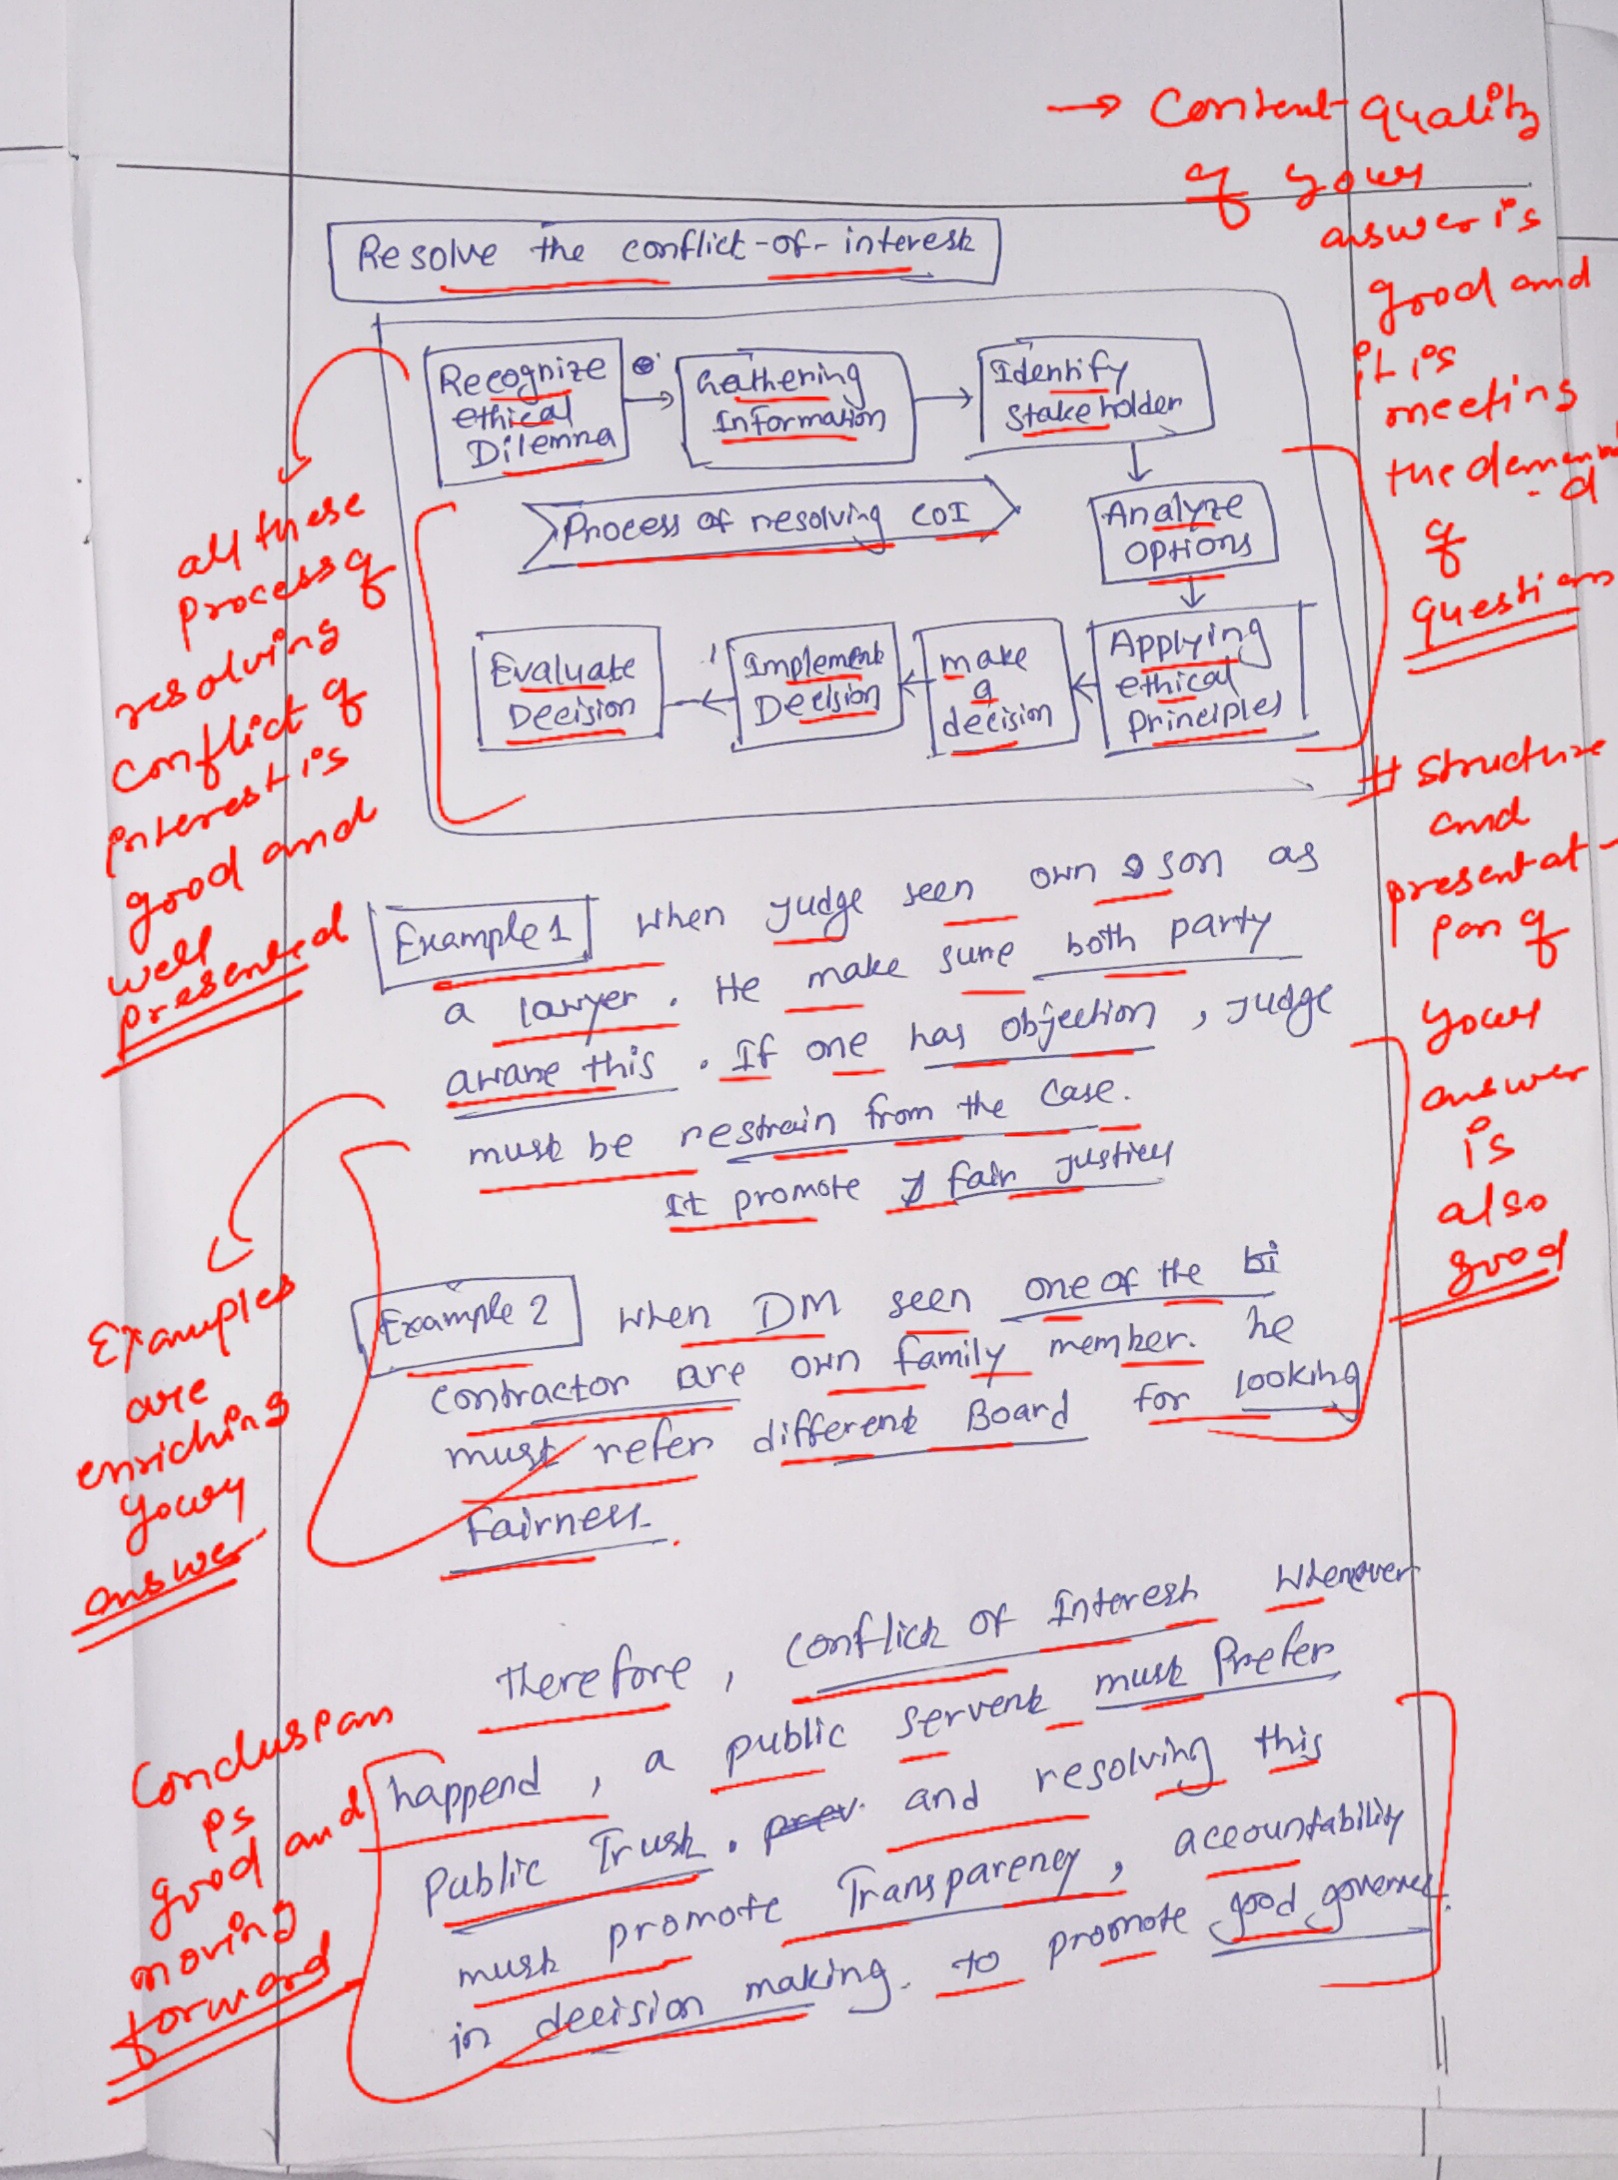 → Content quality
of your
answer is
good and
it is
meeting
the deman
-d
of
questions
Resolve the conflict-of-interest
Recognize
ethical
Dilemna
Gathering
Information
Identify
Stakeholder
Process of resolving COI
Analyze
Options
Evaluate
Decision
Implement
Decision
make
a
decision
Applying
ethical
Principles
all these
process of
resolving
conflict of
interest is
good and
well
presented
# structure
and
presentat-
ion of
your
answer
is
also
good
Example 1 When Judge seen own son as
a lawyer. He make sure both party
aware this. If one has objection, Judge
must be restrain from the case.
It promote fair justice
Examples
are
enriching
your
answer
Example 2 When DM seen one of the bi
contractor are own family member. he
must refer different Board for looking
Fairness.
Therefore, conflict of Interest whenever
happend, a public servent must Prefer
Public Trust. prev. and resolving this
must promote Transparency, accountability
in decision making. to promote good governce.
Conclusion
is
good and
moving
forward